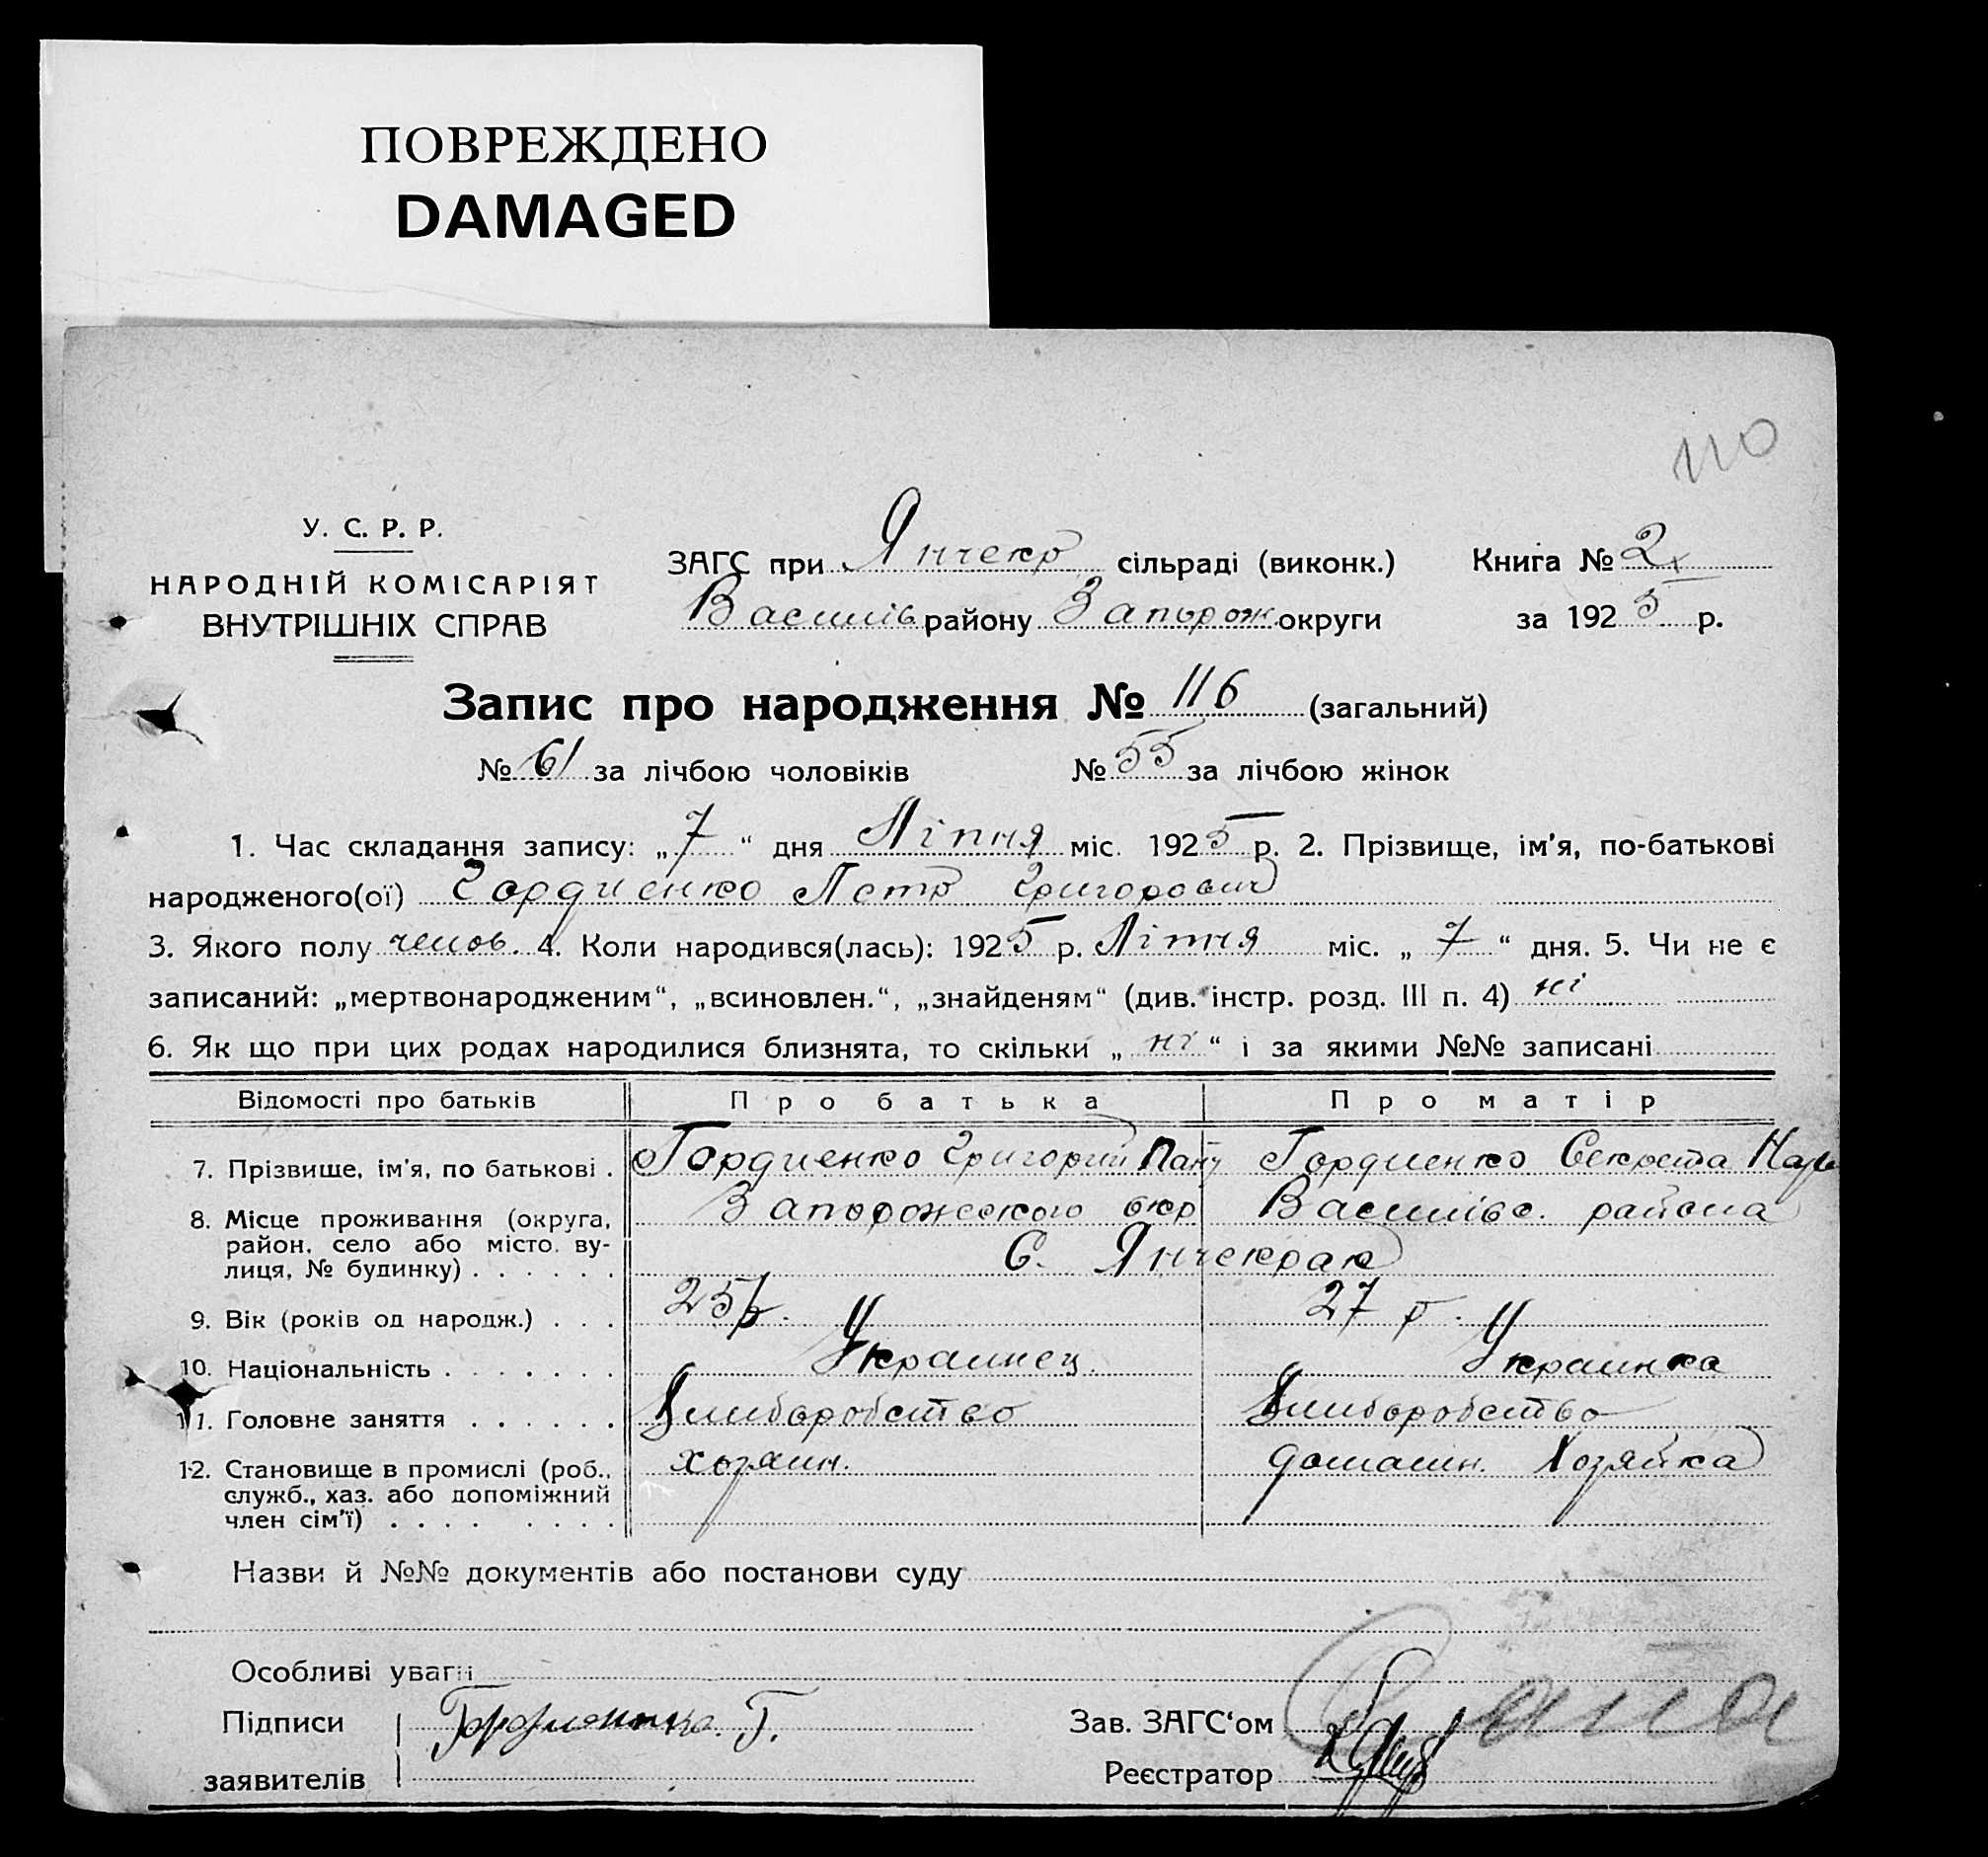 ПОВРЕЖДЕНО
DAMAGED
110
У. С. Р. Р.
НАРОДНІЙ КОМІСАРІЯТ
ВНУТРІШНІХ СПРАВ
ЗАГС при Янчекр сільраді (виконк.)
Василів району Запорож округи
Книга № 2
за 1925 р.
Запис про народження № 116 (загальний)
№ 61 за лічбою чоловіків № 55 за лічбою жінок
1. Час складання запису: „7“ дня Ліпня міс. 1925 р. 2. Прізвище, ім'я, по-батькові
народженого(ої) Гордиенко Петр Григорович
3. Якого полу челов. 4. Коли народився(лась): 1925 р. Ліпня міс. „7“ дня. 5. Чи не є
записаний: „мертвонародженим“, „всиновлен.“, „знайденям“ (див. інстр. розд. III п. 4) ні
6. Як що при цих родах народилися близнята, то скільки „ні“ і за якими №№ записані
Відомості про батьків Про батька Про матір
7. Прізвище, ім'я, по батькові . Гордиенко Григорий Гордиенко
8. Місце проживання (округа, район, село або місто, вулиця, № будинку) . . . . . . Запорожского окр Василівс. района
С. Янчекрак
9. Вік (років од народж.) . . . 25 р. 27 р.
10. Національність . . . . . . . Украинец. Украинка
11. Головне заняття . . . . . . Хлиборобство Хлиборобство
12. Становище в промислі (роб., служб., хаз. або допоміжний член сім'ї) . . . . . . . . хозяин. домашн. Хозяйка
Назви й №№ документів або постанови суду
Особливі уваги
Підписи Гордиенко Г. Зав. ЗАГС‘ом
заявителів Реєстратор